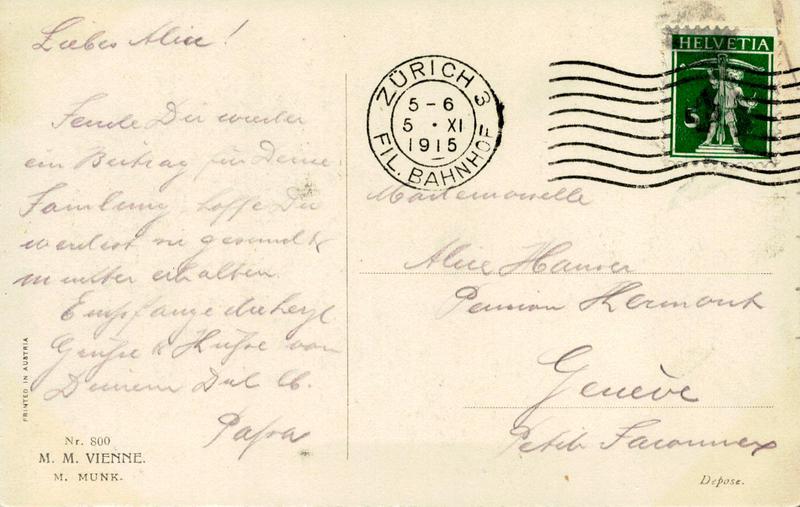 Liebes Alice!
Sende Dir wieder
ein Beitrag für Deine
Samlung, hoffe Du
werdest sie gesund &
munter erhalten.
Empfange die herzl
Grüße & Küße von
Deinem Dich lb.
Papa
PRINTED IN AUSTRIA
Nr. 800
M. M. VIENNE.
M. MUNK.
ZÜRICH 3
5-6
5 · XI
1915
FIL. BAHNHOF
HELVETIA
5
Mademoiselle
Alice Hauser
Pension
Genève
Petit Saconnex
Depose.